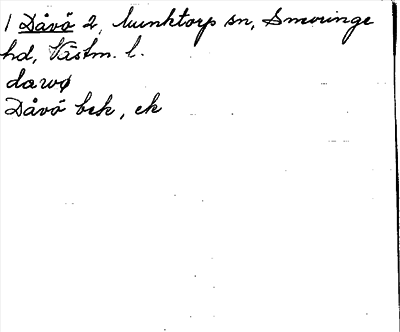 1 Dåvö 2, Munktorp sn, Snevringe
hd, Västm. l.
dawø
Dåvö bek, ek